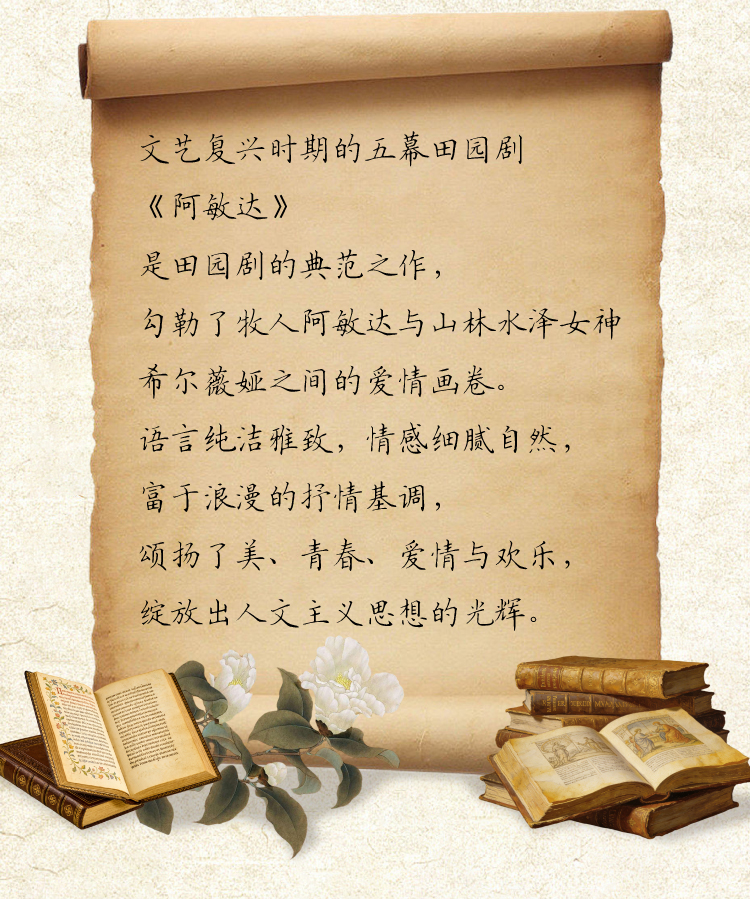 文艺复兴时期的五幕田园剧
《阿敏达》
是田园剧的典范之作，
勾勒了牧人阿敏达与山林水泽女神
希尔薇娅之间的爱情画卷。
语言纯洁雅致，情感细腻自然，
富于浪漫的抒情基调，
颂扬了美、青春、爱情与欢乐，
绽放出人文主义思想的光辉。